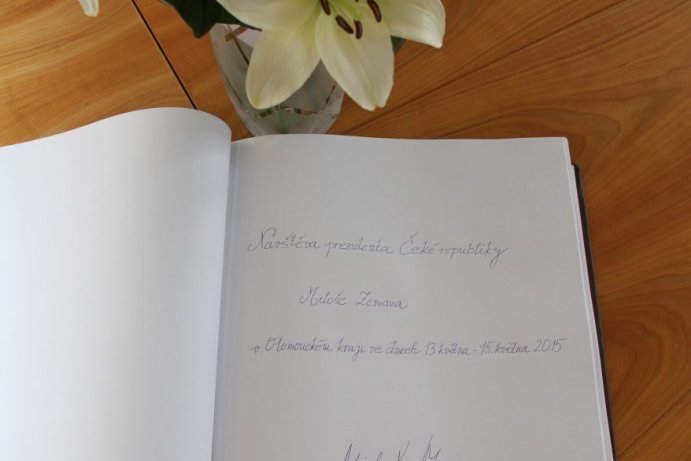 Návštěva prezidenta České republiky
Miloše Zemana
v Olomouckém kraji ve dnech 13. května - 15. května 2015